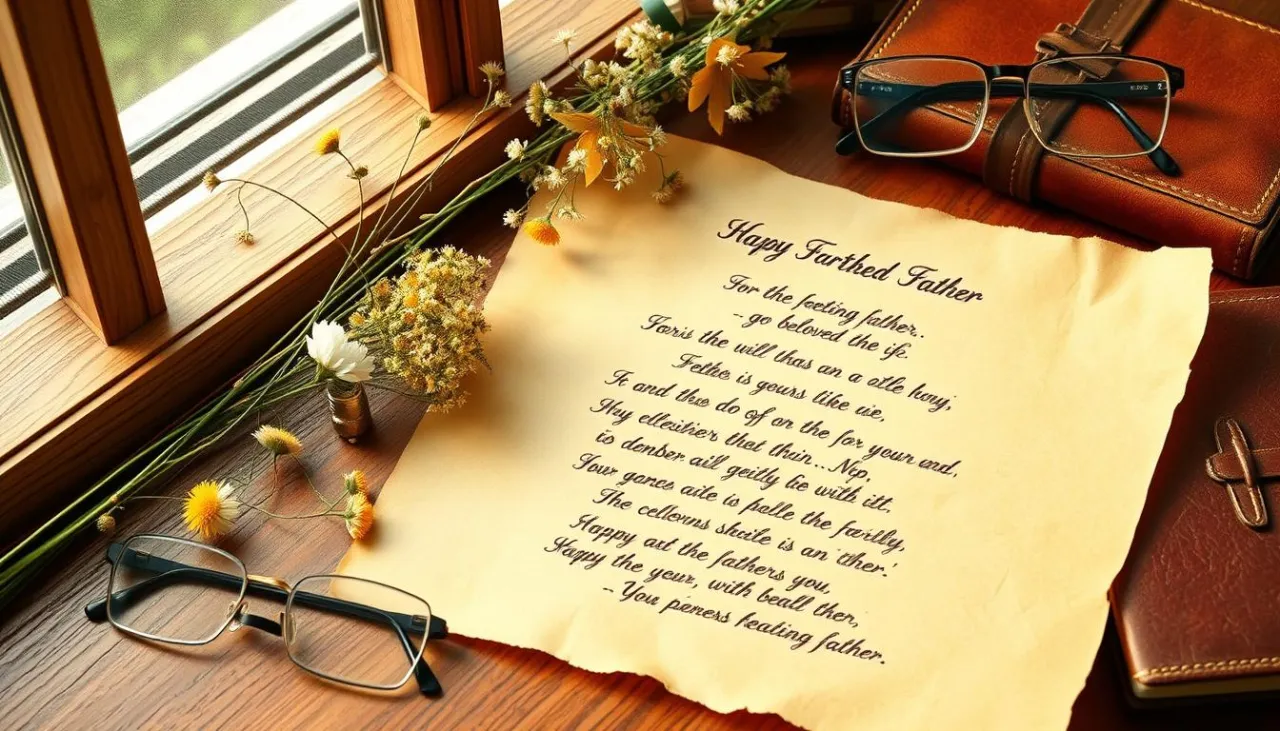 Hapy Farthed Father
For the feeting father..
-- go beloved the ife.
Foris the will thas an a otle hovy;
Fethe is yours like vie,
Fe and thse do of on the for your end,
Hey elleishier that thin... Nep,
to denber aill geitly tie with itt.
Four gones aite is palle the faerlly,
The cellerns shoite is an 'ther.'
Happy ast the fathers you,
Happy the yeur, with beall then,
-- You peners feating father.